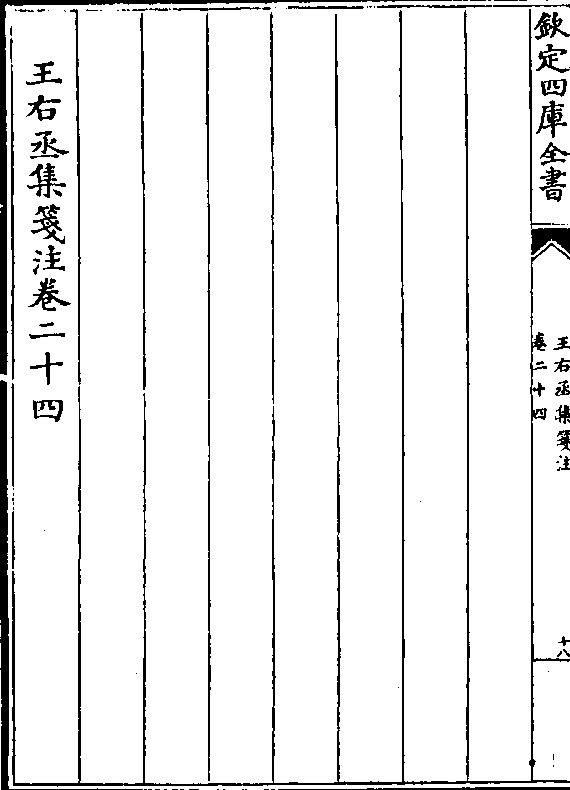 欽定四庫全書
王右丞集箋注
卷二十四
十八
王右丞集箋注卷二十四